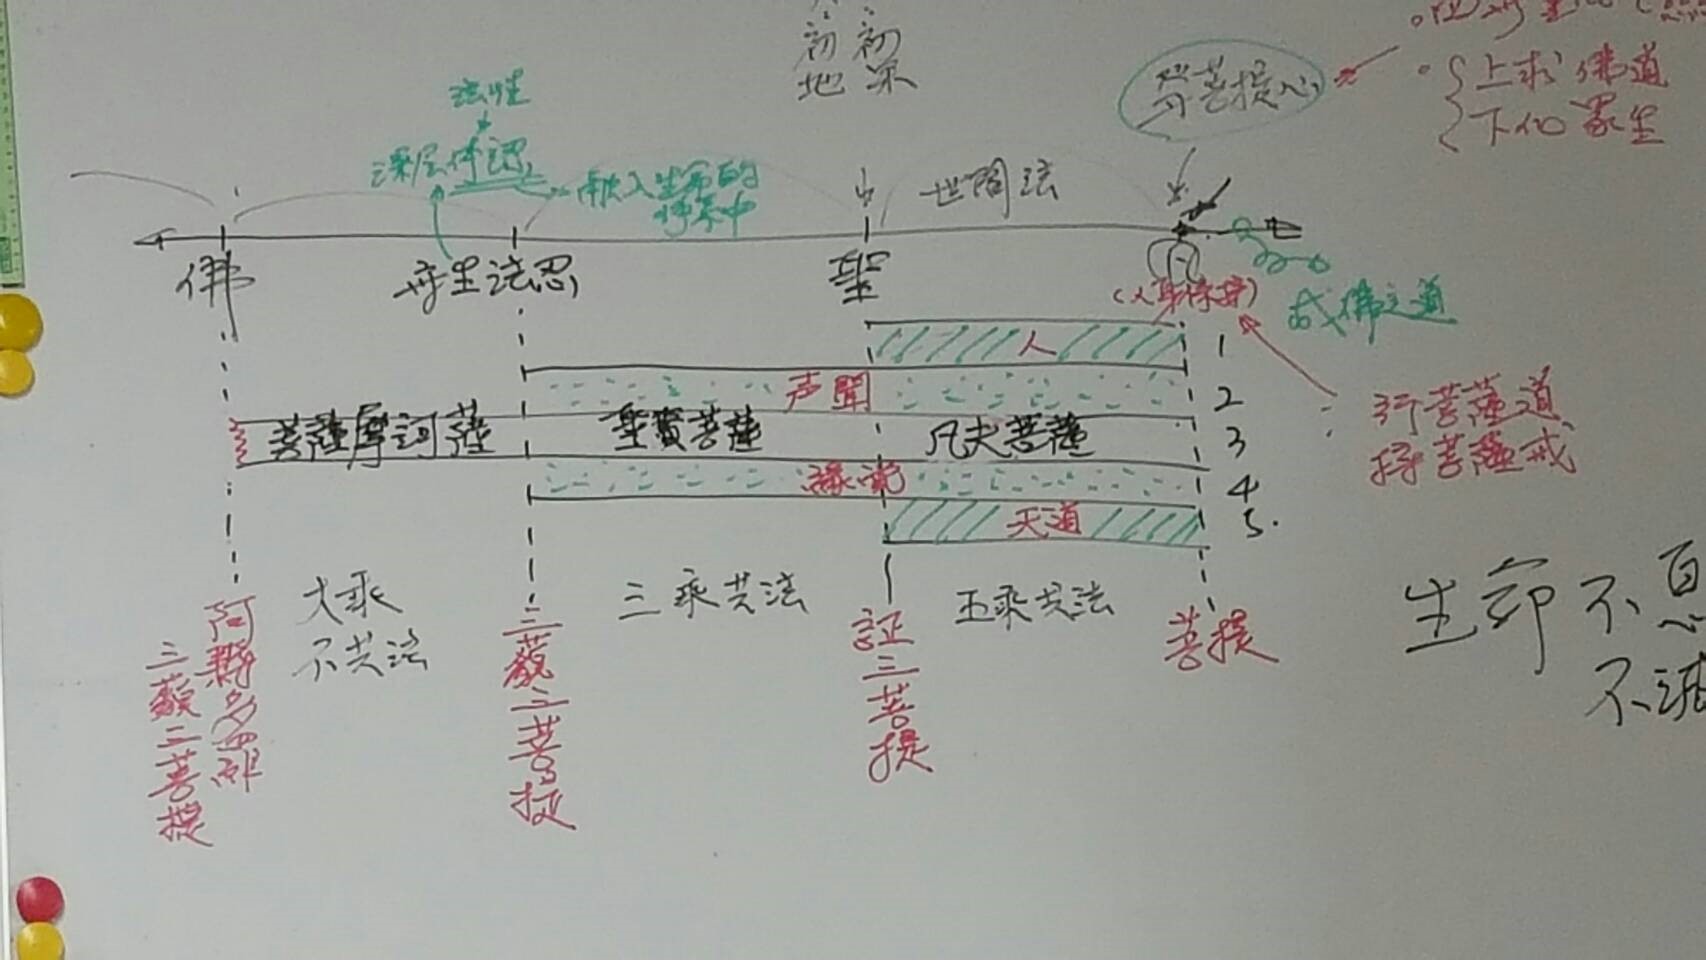 初初
地果
發菩提心
上求佛道
下化眾生
法性
深层体認
融入生命的
世間法
佛
無生法忍
聖
成佛之道
人
1
声聞
2
菩薩摩訶薩
聖賢菩薩
凡夫菩薩
3
緣覺
4
天道
5.
行菩薩道
持菩薩戒
大乘
不共法
三乘共法
五乘共法
阿耨多羅
三藐三菩提
三藐三菩提
証三菩提
菩提
生命不息
不滅